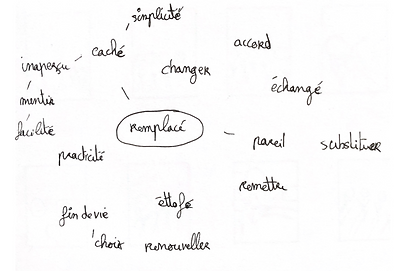 simplicité
accord
caché
inaperçu
changer
échangé
mentir
facilité
remplacé
pareil
substituer
practicité
remettre
étoffé
fin de vie
choix
renouveller